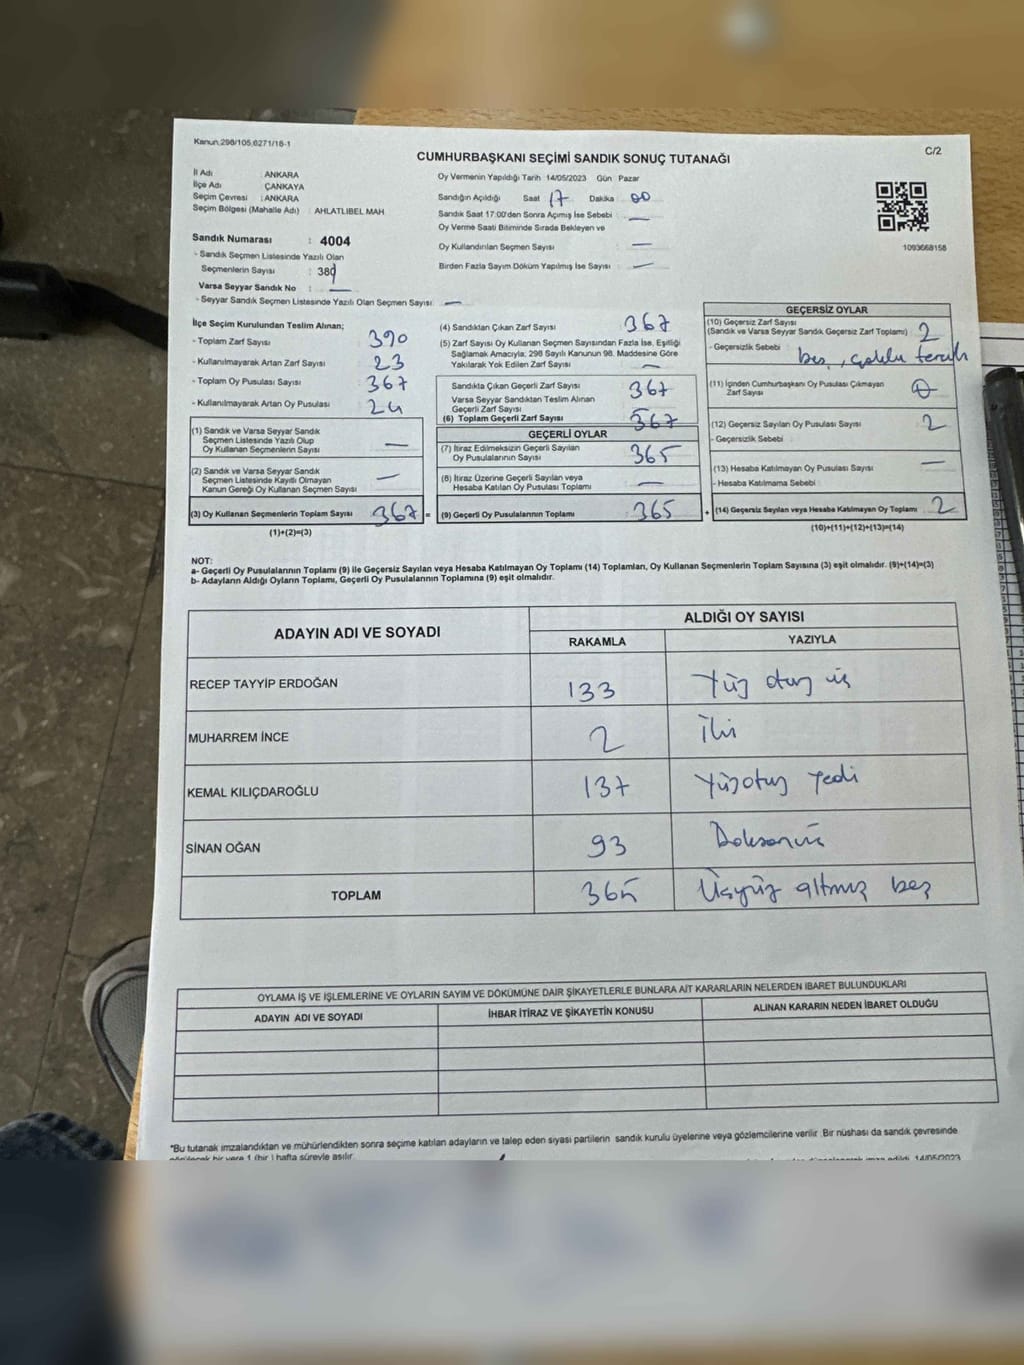 Kanun:298/105,6271/16-1
C/2
CUMHURBAŞKANI SEÇİMİ SANDIK SONUÇ TUTANAĞI
İl Adı : ANKARA
İlçe Adı : ÇANKAYA
Seçim Çevresi : ANKARA
Seçim Bölgesi (Mahalle Adı) : AHLATLIBEL MAH
Sandık Numarası : 4004
- Sandık Seçmen Listesinde Yazılı Olan
Seçmenlerin Sayısı : 389
Varsa Seyyar Sandık No : —
- Seyyar Sandık Seçmen Listesinde Yazılı Olan Seçmen Sayısı : —
Oy Vermenin Yapıldığı Tarih 14/05/2023 Gün Pazar
Sandığın Açıldığı Saat 17 Dakika : 00
Sandık Saat 17.00'den Sonra Açımış İse Sebebi : —
Oy Verme Saati Bitiminde Sırada Bekleyen ve
Oy Kullandırılan Seçmen Sayısı —
Birden Fazla Sayım Döküm Yapılmış İse Sayısı : —
1093668158
İlçe Seçim Kurulundan Teslim Alınan;
- Toplam Zarf Sayısı 390
- Kullanılmayarak Artan Zarf Sayısı 23
- Toplam Oy Pusulası Sayısı : 367
- Kullanılmayarak Artan Oy Pusulası : 24
(1) Sandık ve Varsa Seyyar Sandık
Seçmen Listesinde Yazılı Olup
Oy Kullanan Seçmenlerin Sayısı —
(2) Sandık ve Varsa Seyyar Sandık
Seçmen Listesinde Kayıtlı Olmayan
Kanun Gereği Oy Kullanan Seçmen Sayısı —
(3) Oy Kullanan Seçmenlerin Toplam Sayısı 367 =
(1)+(2)=(3)
(4) Sandıktan Çıkan Zarf Sayısı 367
(5) Zarf Sayısı Oy Kullanan Seçmen Sayısından Fazla İse, Eşitliği
Sağlamak Amacıyla; 298 Sayılı Kanunun 98. Maddesine Göre
Yakılarak Yok Edilen Zarf Sayısı —
Sandıkta Çıkan Geçerli Zarf Sayısı 367
Varsa Seyyar Sandıktan Teslim Alınan
Geçerli Zarf Sayısı
(6) Toplam Geçerli Zarf Sayısı 367
GEÇERLİ OYLAR
(7) İtiraz Edilmeksizin Geçerli Sayılan
Oy Pusulalarının Sayısı 365
(8) İtiraz Üzerine Geçerli Sayılan veya
Hesaba Katılan Oy Pusulası Toplamı —
(9) Geçerli Oy Pusulalarının Toplamı 365 +
GEÇERSİZ OYLAR
(10) Geçersiz Zarf Sayısı
(Sandık ve Varsa Seyyar Sandık Geçersiz Zarf Toplamı) 2
- Geçersizlik Sebebi : boş, çoklu tercih
(11) İçinden Cumhurbaşkanı Oy Pusulası Çıkmayan
Zarf Sayısı
(12) Geçersiz Sayılan Oy Pusulası Sayısı 2
- Geçersizlik Sebebi
(13) Hesaba Katılmayan Oy Pusulası Sayısı —
- Hesaba Katılmama Sebebi
(14) Geçersiz Sayılan veya Hesaba Katılmayan Oy Toplamı 2
(10)+(11)+(12)+(13)=(14)
NOT:
a- Geçerli Oy Pusulalarının Toplamı (9) ile Geçersiz Sayılan veya Hesaba Katılmayan Oy Toplamı (14) Toplamları, Oy Kullanan Seçmenlerin Toplam Sayısına (3) eşit olmalıdır. (9)+(14)=(3)
b- Adayların Aldığı Oyların Toplamı, Geçerli Oy Pusulalarının Toplamına (9) eşit olmalıdır.
ADAYIN ADI VE SOYADI
ALDIĞI OY SAYISI
RAKAMLA YAZIYLA
RECEP TAYYİP ERDOĞAN 133 Yüz otuz üç
MUHARREM İNCE 2 İki
KEMAL KILIÇDAROĞLU 137 Yüzotuz yedi
SİNAN OĞAN 93 Doksanüç
TOPLAM 365 Üçyüz altmış beş
OYLAMA İŞ VE İŞLEMLERİNE VE OYLARIN SAYIM VE DÖKÜMÜNE DAİR ŞİKAYETLERLE BUNLARA AİT KARARLARIN NELERDEN İBARET BULUNDUKLARI
ADAYIN ADI VE SOYADI İHBAR İTİRAZ VE ŞİKAYETİN KONUSU ALINAN KARARIN NEDEN İBARET OLDUĞU
*Bu tutanak imzalandıktan ve mühürlendikten sonra seçime katılan adayların ve talep eden siyasi partilerin sandık kurulu üyelerine veya gözlemcilerine verilir .Bir nüshası da sandık çevresinde
görülecek bir yere 1 (bir ) hafta süreyle asılır. imza edildi. 14/05/2023